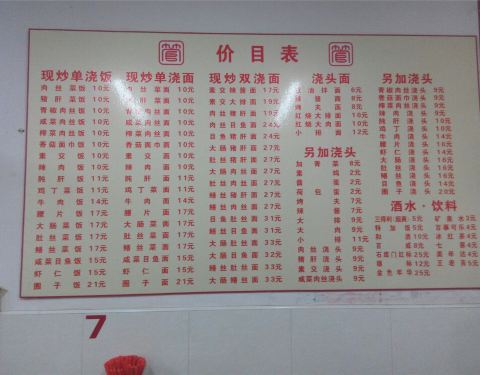 價目表
现炒单浇饭
肉丝菜饭 10元
猪肝菜饭 10元
青椒肉丝饭 10元
咸菜肉丝饭 10元
榨菜肉丝饭 10元
香菇面巾饭 10元
素交饭 10元
辣肉饭 10元
肫肝饭 11元
鸡丁菜饭 11元
牛肉饭 14元
腰片饭 17元
大肠菜饭 17元
肚丝菜饭 17元
鳝丝菜饭 17元
咸菜目鱼饭 15元
虾仁饭 15元
圈子饭 21元
现炒单浇面
肉丝菜面 10元
猪肝菜面 10元
青椒肉丝面 10元
咸菜肉丝面 10元
榨菜肉丝面 10元
香菇面巾面 10元
素交面 10元
辣肉面 10元
肫肝面 11元
鸡丁菜面 11元
牛肉面 14元
腰片面 17元
大肠菜面 17元
肚丝菜面 17元
鳝丝菜面 17元
咸菜目鱼面 15元
虾仁面 15元
圈子面 21元
现炒双浇面
素交辣酱面 17元
素交大排面 19元
肉丝猪肝面 19元
肉丝目鱼面 24元
目鱼猪肝面 24元
大肠猪肝面 27元
大肠肉丝面 27元
肚丝猪肝面 27元
肚丝肉丝面 27元
鳝丝猪肝面 27元
鳝丝肉丝面 27元
目鱼肚丝面 31元
目鱼鳝丝面 31元
目鱼大肠面 31元
大肠肚丝面 33元
鳝丝肚丝面 33元
大肠鳝丝面 33元
浇头面
葱油拌面 6元
辣酱面 8元
烤夫面 8元
红烧大排面 10元
红烧大肉面 10元
小排面 12元
另加浇头
加青菜 6元
素鸡 2元
酱蛋 2元
荷包蛋 2元
烤夫 7元
辣酱 7元
大排 9元
大肉 9元
小排 11元
肉丝浇头 9元
猪肝浇头 9元
素交浇头 9元
咸菜肉丝浇头 9元
另加浇头
青椒肉丝浇头 9元
香菇面巾浇头 9元
榨菜肉丝浇头 9元
辣肉浇头 9元
肫肝浇头 10元
鸡丁浇头 10元
牛肉浇头 14元
腰片浇头 16元
大肠浇头 16元
肚丝浇头 16元
鳝丝浇头 16元
目鱼浇头 14元
虾仁浇头 14元
圈子浇头 20元
酒水·饮料
5元
矿泉水 2元
百事可乐 4元
冰红茶 4元
百威 8元
七喜 4元
石库门红标 25元
美年达 4元
银标 12元
王老吉 5元
金色年华 25元
7